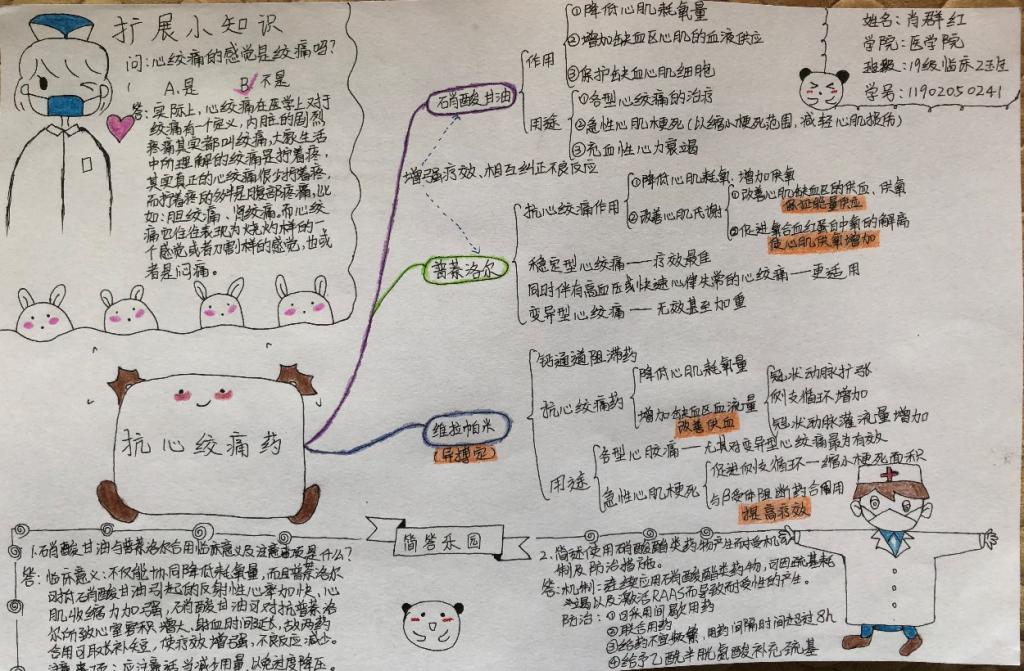 扩展小知识
问:心绞痛的感觉是绞痛吗?
A.是 B.不是
答:实际上,心绞痛在医学上对于
绞痛有一个定义,内脏的剧烈
疼痛其实都叫绞痛,大家生活
中所理解的绞痛是拧着疼,
其实真正的心绞痛很少拧着疼,
而拧着疼的多半是腹部疼痛,比
如:胆绞痛、肾绞痛,而心绞
痛它往往表现为烧灼样的一
个感觉或者刀割样的感觉,也或
者是闷痛。
姓名:肖群红
学院:医学院
班级:19级临床2班
学号:11902050241
抗心绞痛药
硝酸甘油
作用
①降低心肌耗氧量
②增加缺血区心肌的血液供应
③保护缺血心肌细胞
用途
①各型心绞痛的治疗
②急性心肌梗死(以缩小梗死范围,减轻心肌损伤)
③充血性心力衰竭
增强疗效、相互纠正不良反应
普萘洛尔
抗心绞痛作用
①降低心肌耗氧、增加供氧
②改善心肌代谢
①改善心肌缺血区的供血、供氧
保证能量供应
②促进氧合血红蛋白中氧的解离
使心肌供氧增加
稳定型心绞痛——疗效最佳
同时伴有高血压或快速心律失常的心绞痛——更适用
变异型心绞痛——无效甚至加重
维拉帕米
(异搏定)
钙通道阻滞药
抗心绞痛药
降低心肌耗氧量
增加缺血区血流量
改善供血
冠状动脉扩张
侧支循环增加
冠状动脉灌流量增加
用途
各型心绞痛——尤其对变异型心绞痛最为有效
急性心肌梗死
促进侧支循环—缩小梗死面积
与β受体阻断药合用
提高疗效
简答乐园
1.硝酸甘油与普萘洛尔合用临床意义及注意事项是什么?
答:临床意义:不仅能协同降低耗氧量,而且普萘洛尔
对抗硝酸甘油引起的反射性心率加快、心
肌收缩力加强,硝酸甘油可对抗普萘洛
尔所致心室容积增大、射血时间延长,故两药
合用可取长补短,使疗效增强,不良反应减少。
注意事项:应注意适当减少用量,以免过度降压。
2.简述使用硝酸酯类药物产生耐受机
制及防治措施。
答:机制:连续应用硝酸酯类药物,可因巯基耗
竭以及激活RAAS而导致耐受性的产生。
防治:①可采用间歇用药
②联合用药
③给药不宜频繁,用药间隔时间超过8h
④给予乙酰半胱氨酸补充巯基